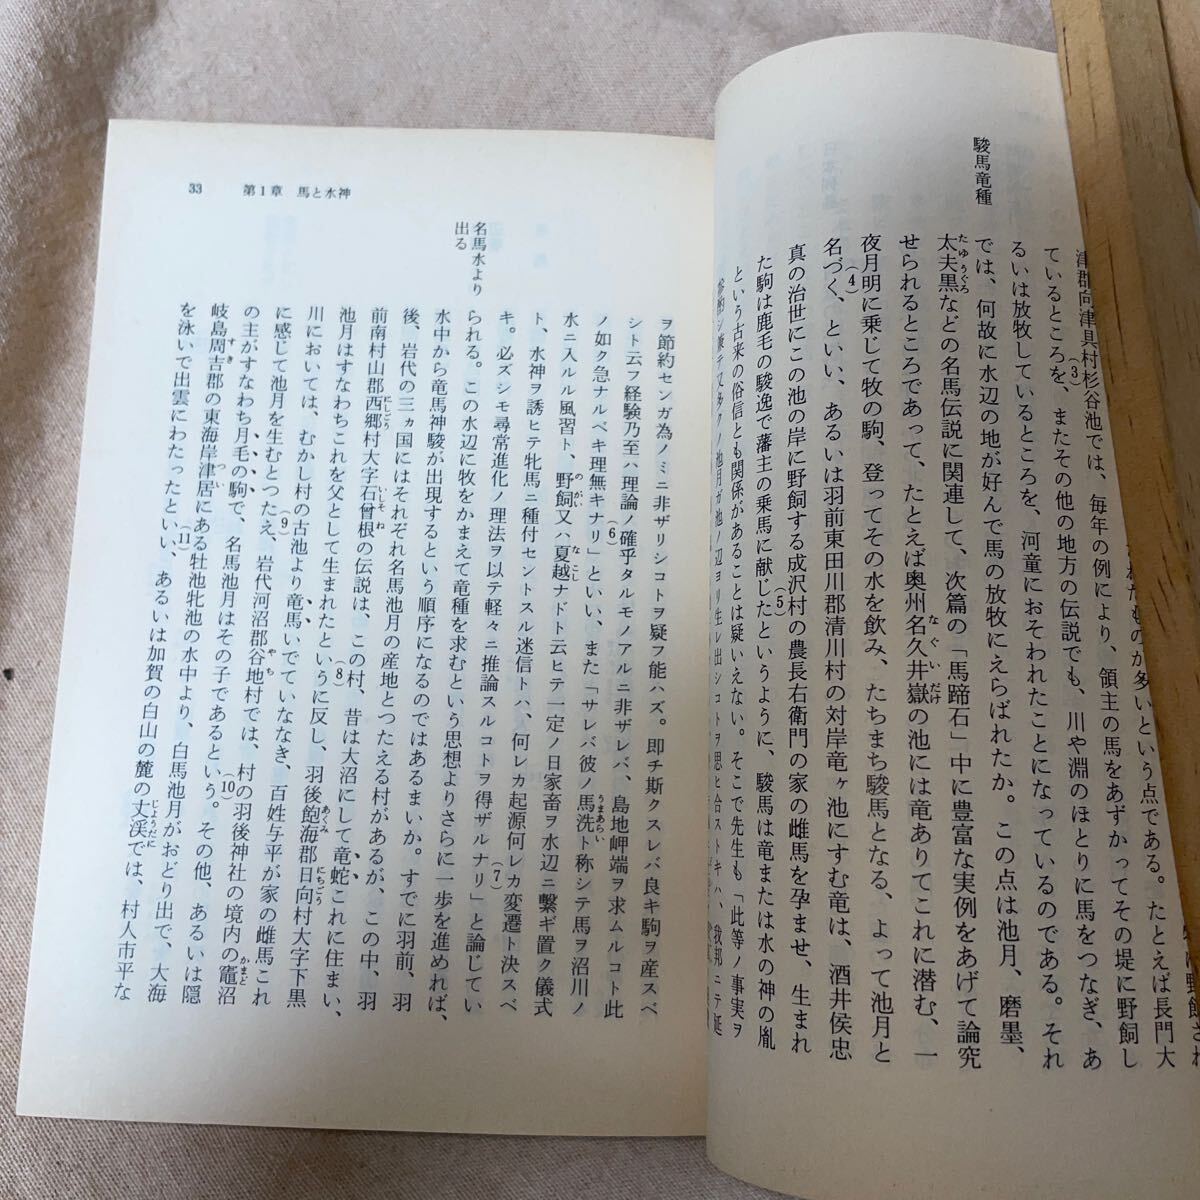 駿馬竜種
津郡向津具村杉谷池では、毎年の例により、領主の馬をあずかってその堤に野飼し
(3)
ているところを、またその他の地方の伝説でも、川や淵のほとりに馬をつなぎ、あ
るいは放牧しているところを、河童におそわれたことになっているのである。それ
では、何故に水辺の地が好んで馬の放牧にえらばれたか。この点は池月、磨墨、
たゆうぐろ
太夫黒などの名馬伝説に関連して、次篇の「馬蹄石」中に豊富な実例をあげて論究
なぐいだけ
せられるところであって、たとえば奥州名久井嶽の池には竜ありてこれに潜む、一
夜月明に乗じて牧の駒、登ってその水を飲み、たちまち駿馬となる、よって池月と
(4)
名づく、といい、あるいは羽前東田川郡清川村の対岸竜ヶ池にすむ竜は、酒井侯忠
真の治世にこの池の岸に野飼する成沢村の農長右衛門の家の雌馬を孕ませ、生まれ
(5)
た駒は鹿毛の駿逸で藩主の乗馬に献じたというように、駿馬は竜または水の神の胤
という古来の俗信とも関係があることは疑いえない。そこで先生も「此等ノ事実ヲ
33 第1章 馬と水神
ヲ節約センガ為ノミニ非ザリシコトヲ疑フ能ハズ。即チ斯クスレバ良キ駒ヲ産スベ
シト云フ経験乃至ハ理論ノ確乎タルモノアルニ非ザレバ、島地岬端ヲ求ムルコト此
(6)
ノ如ク急ナルベキ理無キナリ」といい、また「サレバ彼ノ馬洗ト称シテ馬ヲ沼川ノ
うまあらい
水ニ入ルル風習ト、野飼又ハ夏越ナドト云ヒテ一定ノ日家畜ヲ水辺ニ繋ギ置ク儀式
のがい なこし
ト、水神ヲ誘ヒテ牝馬ニ種付セントスル迷信トハ、何レカ起源何レカ変遷ト決スベ
(7)
キ。必ズシモ尋常進化ノ理法ヲ以テ軽々ニ推論スルコトヲ得ザルナリ」と論じてい
名馬水より
出る
られる。この水辺に牧をかまえて竜種を求むという思想よりさらに一歩を進めれば、
水中から竜馬神駿が出現するという順序になるのではあるまいか。すでに羽前、羽
後、岩代の三ヵ国にはそれぞれ名馬池月の産地とつたえる村があるが、この中、羽
にしごう いしそね
前南村山郡西郷村大字石曾根の伝説は、この村、昔は大沼にして竜蛇これに住まい、
(8)
池月はすなわちこれを父として生まれたというに反し、羽後飽海郡日向村大字下黒
あくみ にちこう
川においては、むかし村の古池より竜馬いでていななき、百姓与平が家の雌馬これ
(9)
に感じて池月を生むとつたえ、岩代河沼郡谷地村では、村の羽後神社の境内の竈沼
やち かまど
(10)
の主がすなわち月毛の駒で、名馬池月はその子であるという。その他、あるいは隠
すき つい
岐島周吉郡の東海岸津居にある牡池牝池の水中より、白馬池月がおどり出で、大海
(11)
を泳いで出雲にわたったといい、あるいは加賀の白山の麓の丈渓では、村人市平な
じょうだに